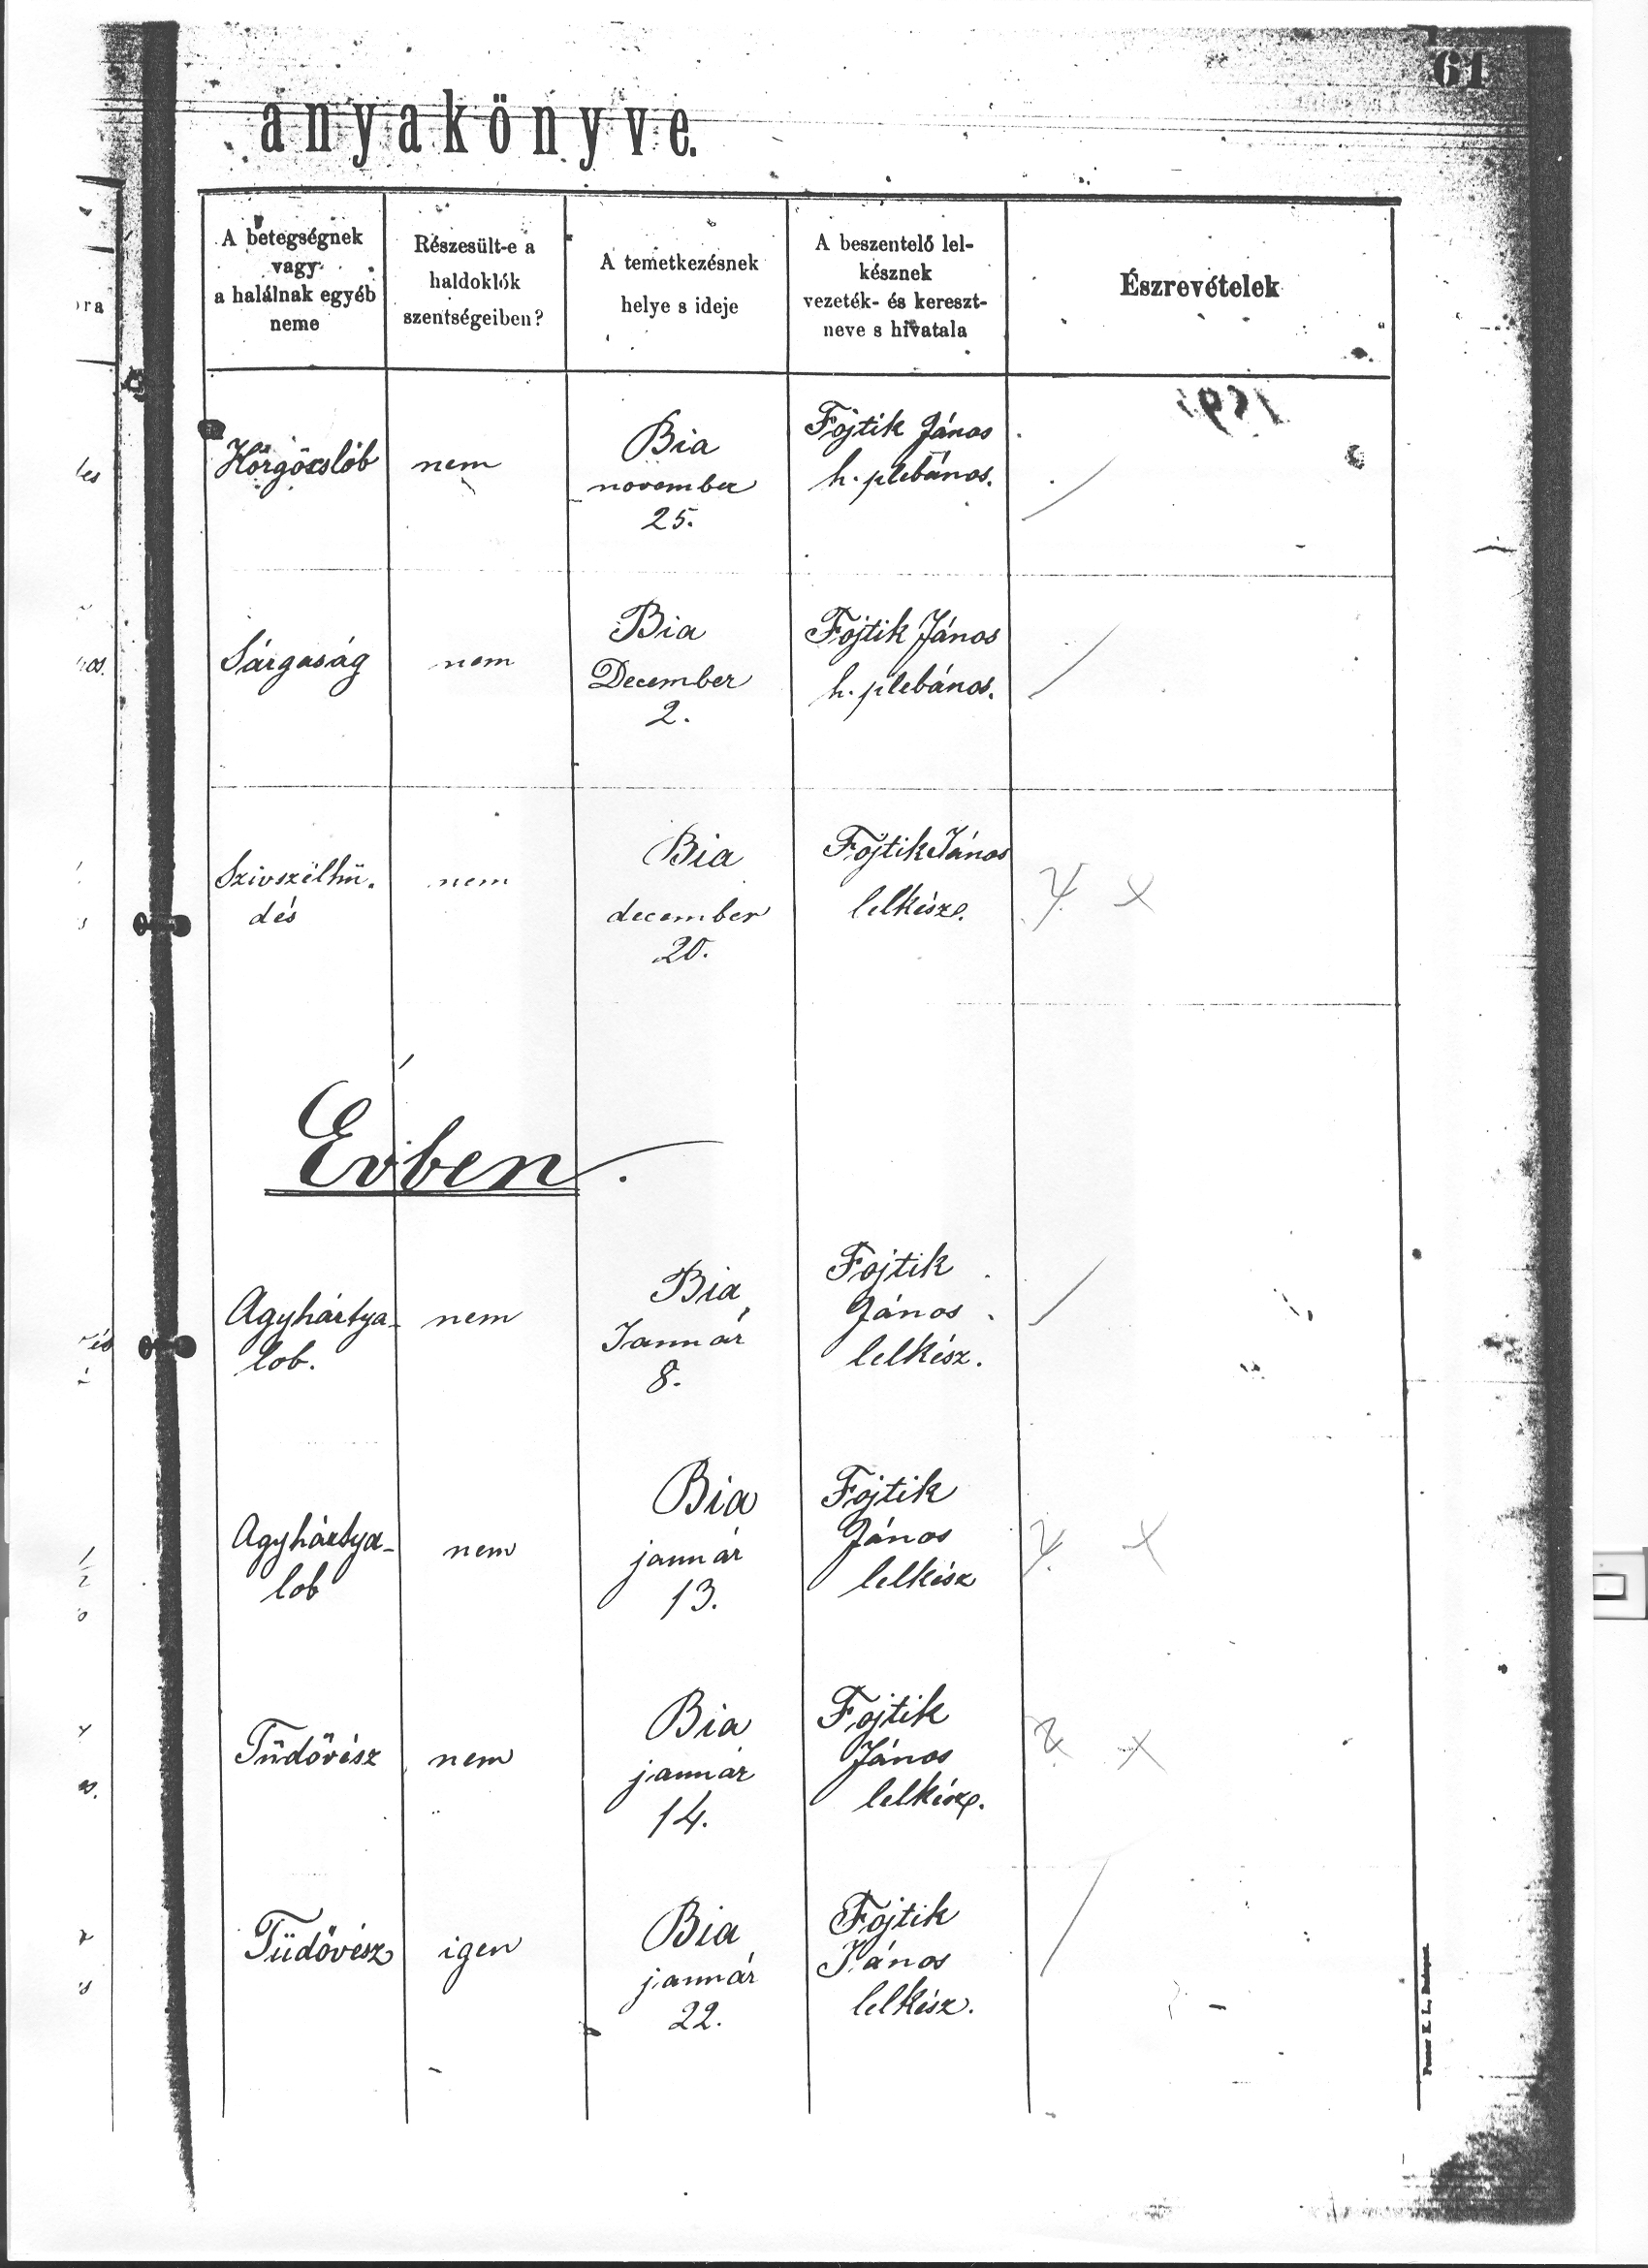 61
anyakönyve.
A betegségnek
vagy
a halálnak egyéb
neme
Részesült-e a
haldoklók
szentségeiben?
A temetkezésnek
helye s ideje
A beszentelő lel-
késznek
vezeték- és kereszt-
neve s hivatala
Észrevételek
ora
Hörgőcslob
nem
Bia
november
25.
Fojtik János
h. plebános.
Sárgaság
nem
Bia
December
2.
Fojtik János
h. plebános.
Szivszélhü-
dés
nem
Bia
december
20.
Fojtik János
lelkész.
Évben.
Agyhártya-
lob.
nem
Bia
Január
8.
Fojtik
János
lelkész.
Agyhártya-
lob
nem
Bia
január
13.
Fojtik
János
lelkész
Tüdővész
nem
Bia
január
14.
Fojtik
János
lelkész.
Tüdővész
igen
Bia
január
22.
Fojtik
János
lelkész.